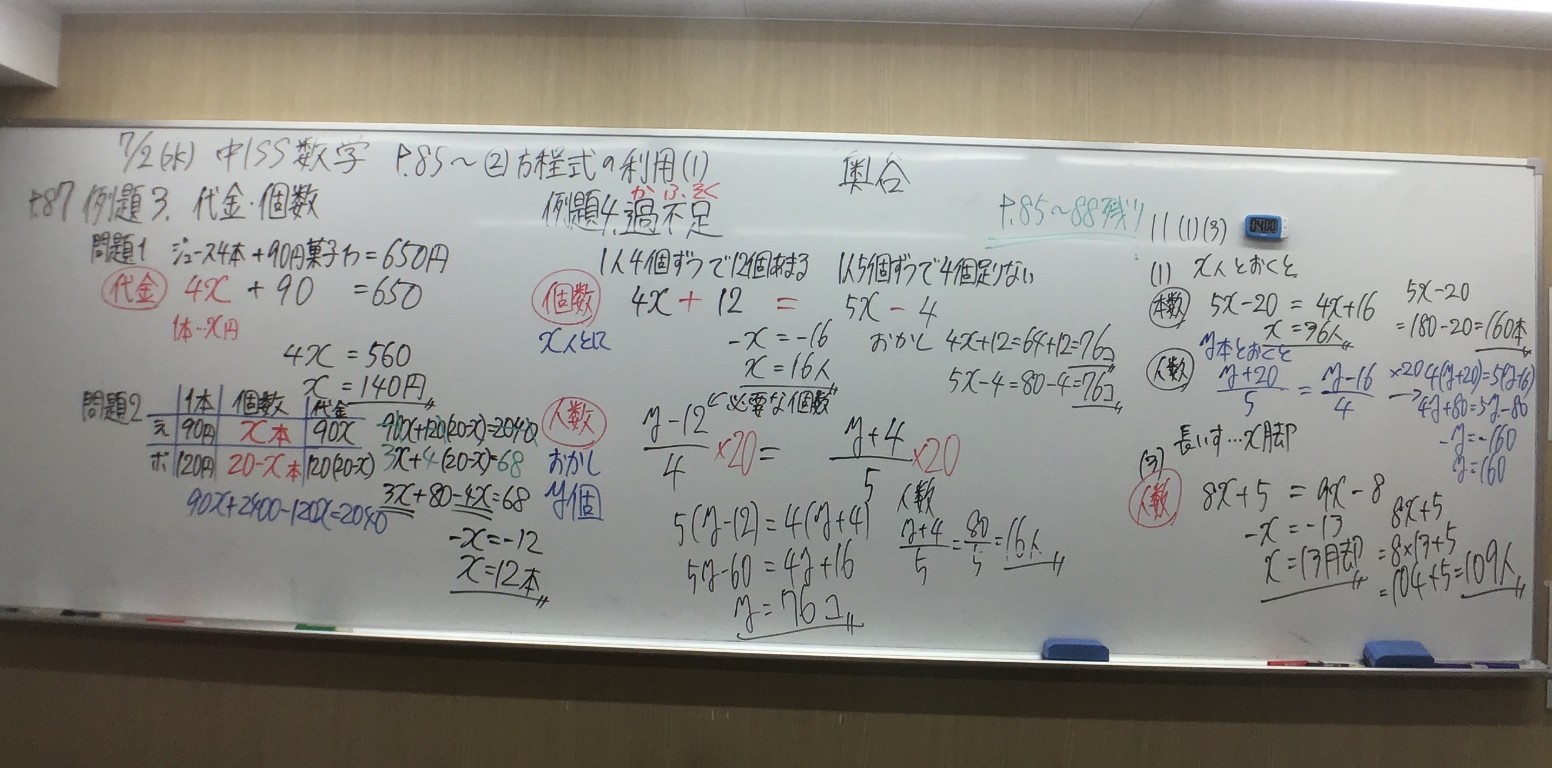 7/2(水) 中1SS 数学 P.85～ ②方程式の利用(1) 奥谷
P.87 例題3. 代金・個数
問題1 ジュース4本+90円菓子1つ=650円
代金 4x + 90 = 650
1本…x円
4x = 560
x = 140円
問題2
1本 個数 代金
90円 x本 90x
ボ 120円 20-x本 120(20-x)
90x+120(20-x)=2040
3x+4(20-x)=68
3x+80-4x=68
90x+2400-120x=2040
-x=-12
x=12本
かふそく
例題4.過不足
1人4個ずつで12個あまる 1人5個ずつで4個足りない
個数 4x + 12 = 5x - 4
x人とに
-x = -16
x = 16人
おかし 4x+12=64+12=76コ
5x-4=80-4=76コ
人数
おかし
y個
必要な個数
y-12/4 ×20 = y+4/5 ×20
5(y-12)=4(y+4)
5y-60=4y+16
y=76コ
人数
y+4/5=80/5=16人
P.85～88残り
11 (1)(3)
(1) x人とおくと
本数 5x-20 = 4x+16
x=36人
5x-20
=180-20=160本
y本とおくと
人数 y+20/5 = y-16/4
×20 4(y+20)=5(y-16)
→ 4y+80=5y-80
-y=-160
y=160
(3) 長いす…x脚
人数 8x+5 = 9x-8
-x = -13
x=13脚
8x+5
=8×13+5
=104+5=109人